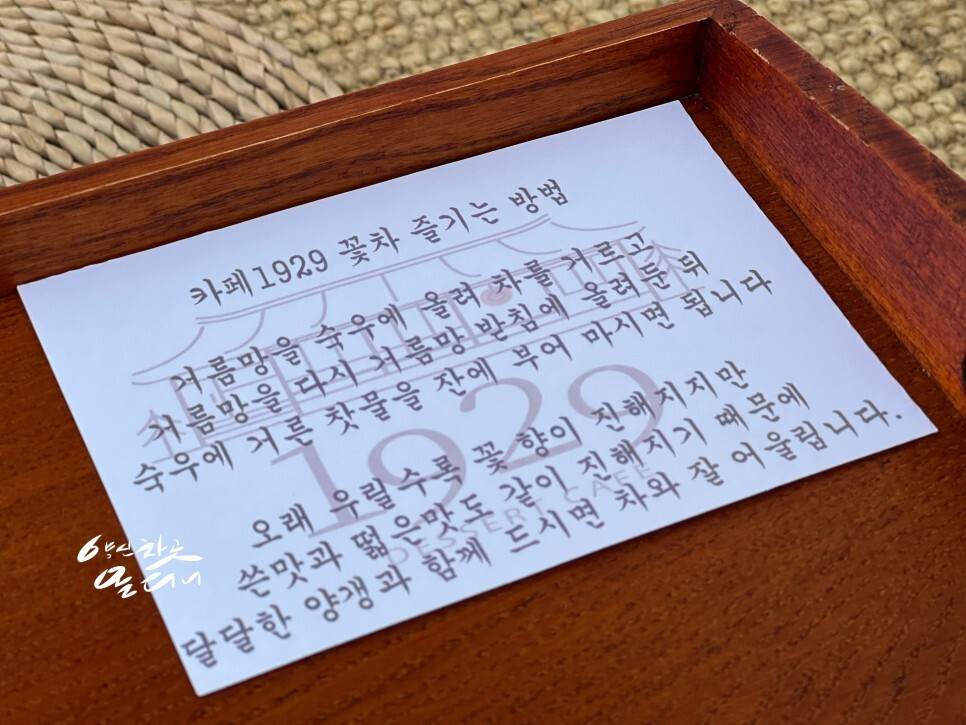 카페1929 꽃차 즐기는 방법
거름망을 숙우에 올려 차를 거르고
거름망을 다시 거름망 받침에 올려둔 뒤
숙우에 거른 찻물을 잔에 부어 마시면 됩니다
오래 우릴 수록 꽃 향이 진해지지만
쓴맛과 떫은맛도 같이 진해지기 때문에
달달한 양갱과 함께 드시면 차와 잘 어울립니다.
1929
DESSERT CAFE